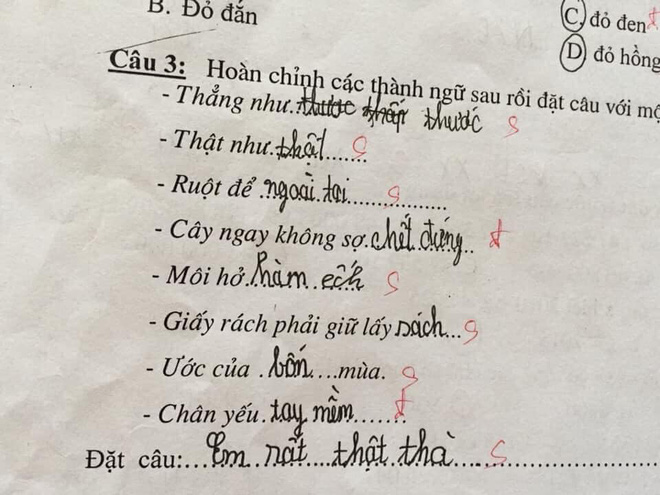 B. Đỏ đắn
C. đỏ đen
D. đỏ hồng
Câu 3: Hoàn chỉnh các thành ngữ sau rồi đặt câu với mộ
- Thẳng như..thước thấp thước s
- Thật như.thật....... s
- Ruột để .ngoài.tai.................. s
- Cây ngay không sợ.chết.đứng.. đ
- Môi hở.hàm.ếch s
- Giấy rách phải giữ lấy sách... s
- Ước của .bốn....mùa. s
- Chân yếu.tay mềm....... đ
Đặt câu:...Em rất....thật thà.................... s